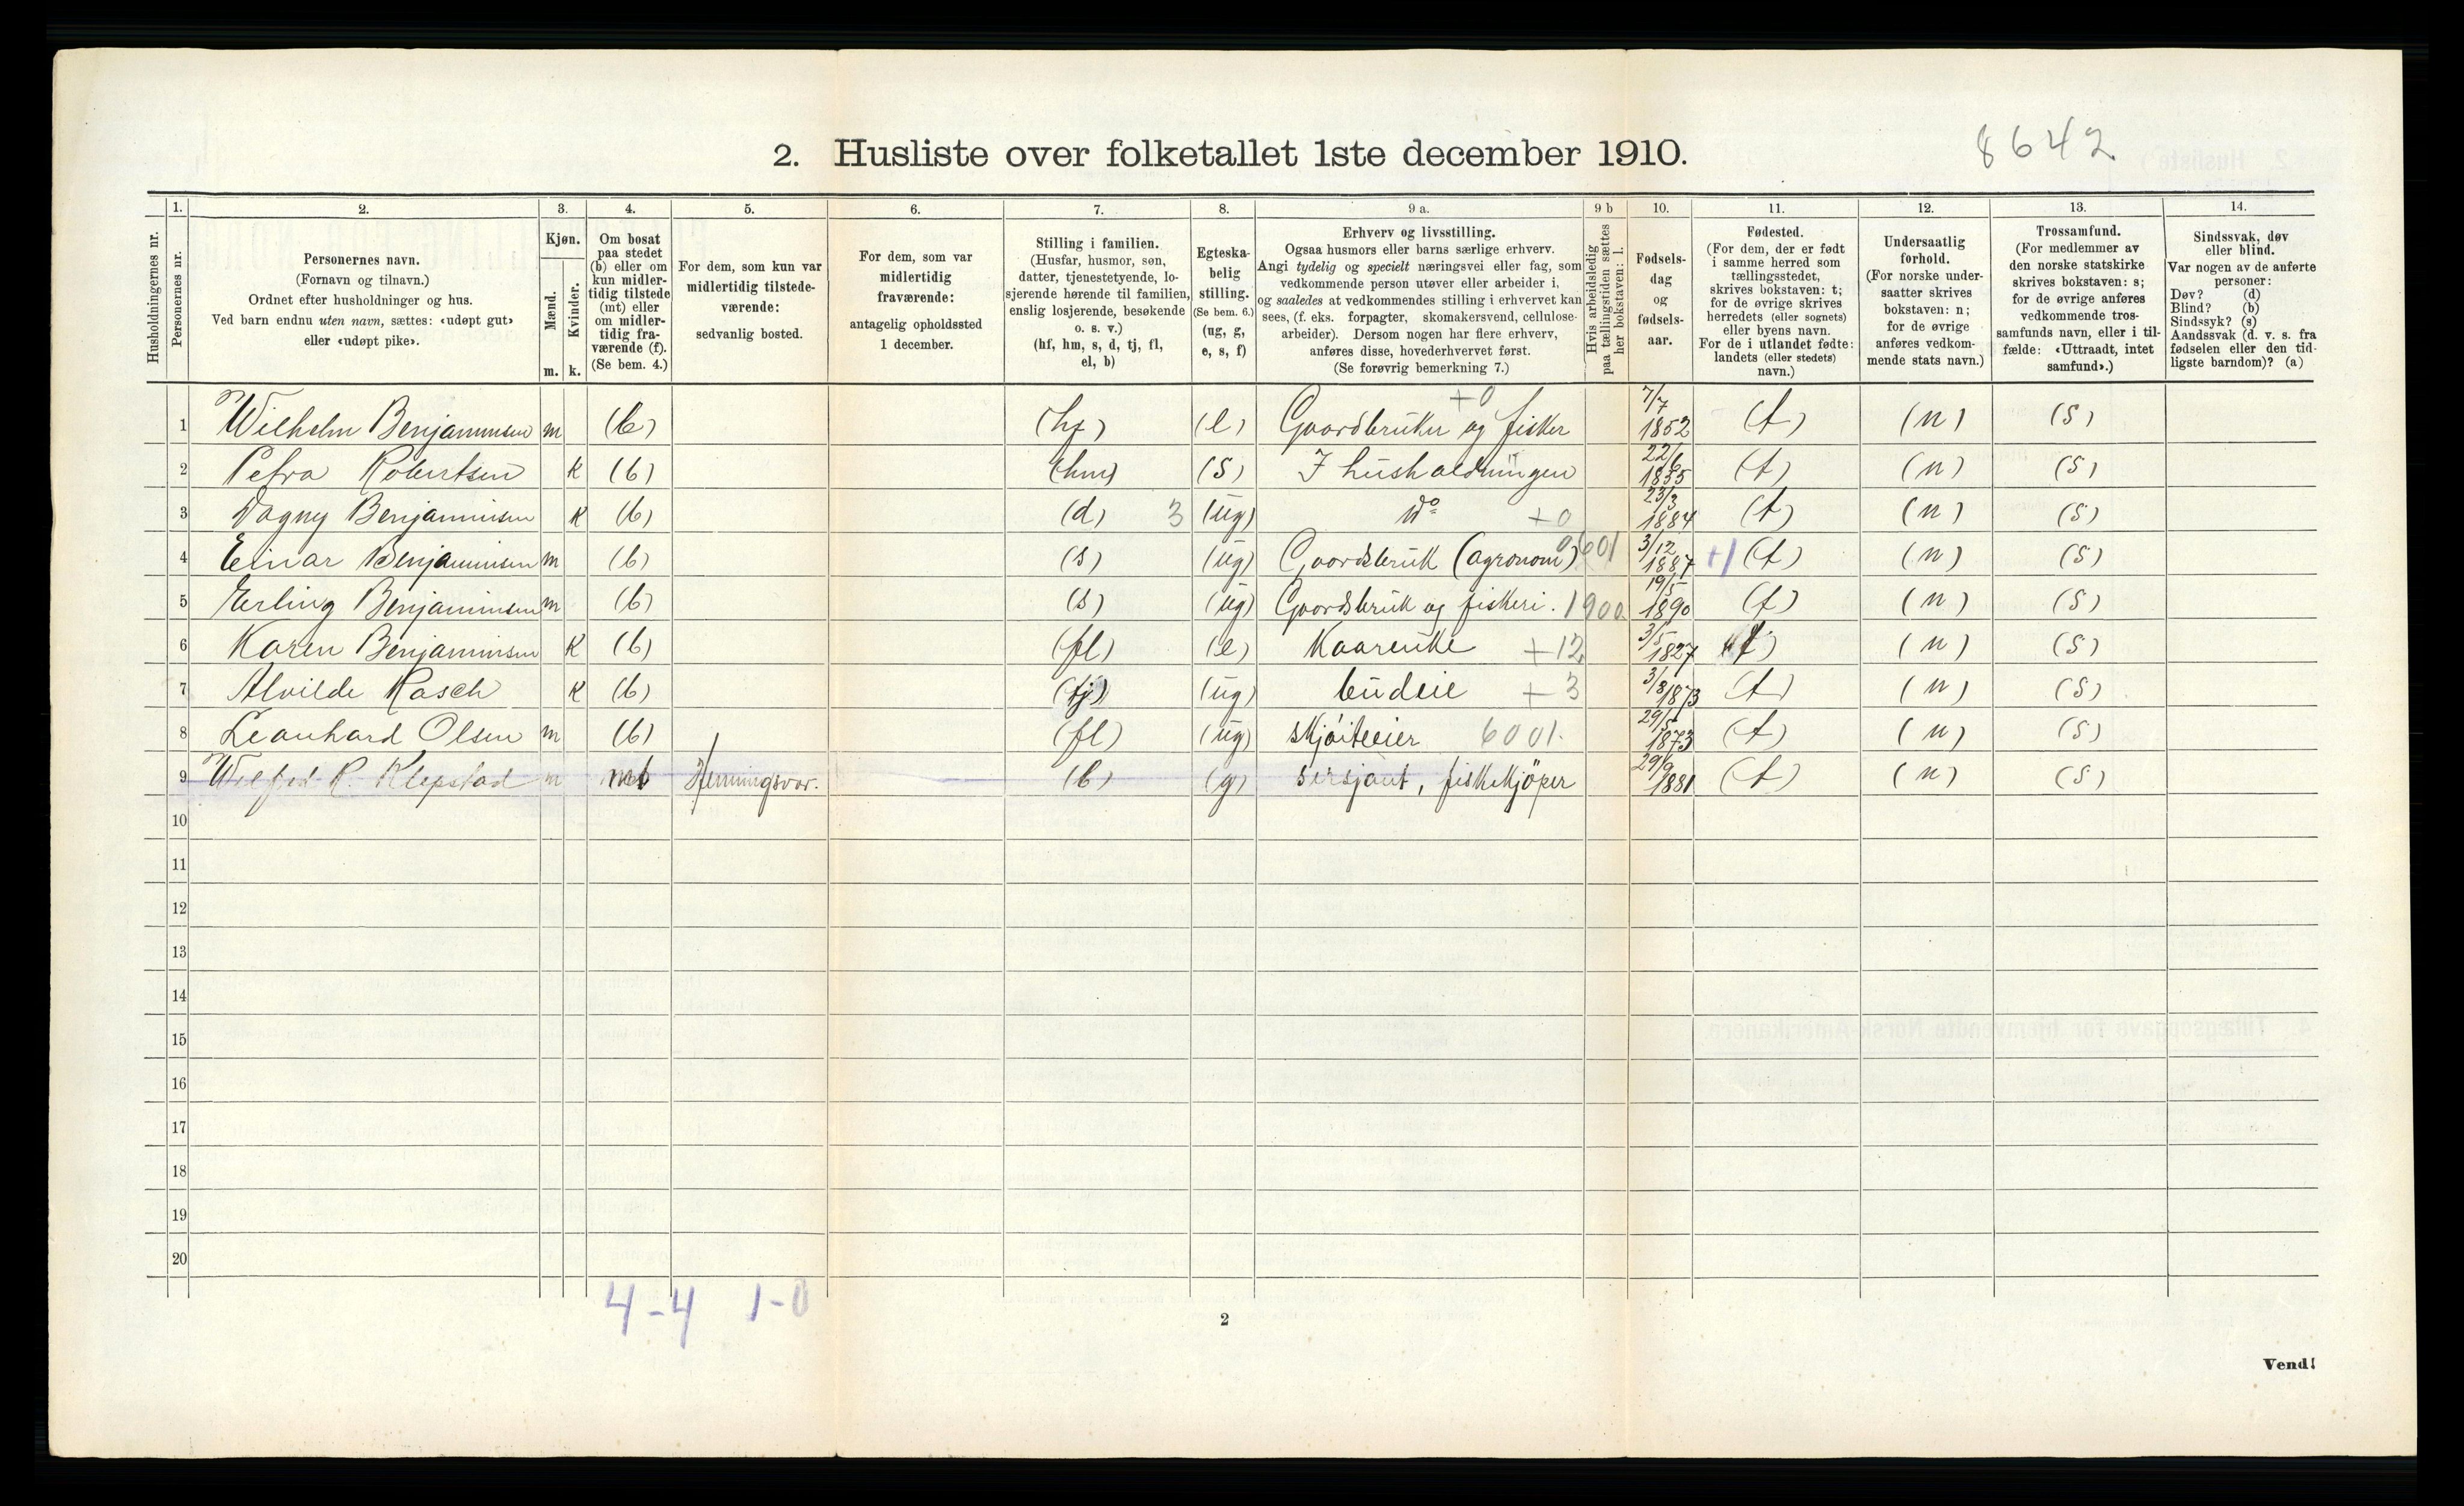 8642
2. Husliste over folketallet 1ste december 1910.
1. 2. 3. 4. 5. 6. 7. 8. 9 a. 9 b 10. 11. 12. 13. 14.
Husholdningernes nr.
Personernes nr.
Personernes navn.
(Fornavn og tilnavn.)
Ordnet efter husholdninger og hus.
Ved barn endnu uten navn, sættes: «udøpt gut»
eller «udøpt pike».
Kjøn.
Mænd. m.
Kvinder. k.
Om bosat
paa stedet
(b) eller om
kun midler-
tidig tilstede
(mt) eller
om midler-
tidig fra-
værende (f).
(Se bem. 4.)
For dem, som kun var
midlertidig tilstede-
værende:
sedvanlig bosted.
For dem, som var
midlertidig
fraværende:
antagelig opholdssted
1 december.
Stilling i familien.
(Husfar, husmor, søn,
datter, tjenestetyende, lo-
sjerende hørende til familien,
enslig losjerende, besøkende
o. s. v.)
(hf, hm, s, d, tj, fl,
el, b)
Egteska-
belig
stilling.
(Se bem. 6.)
(ug, g,
e, s, f)
Erhverv og livsstilling.
Ogsaa husmors eller barns særlige erhverv.
Angi tydelig og specielt næringsvei eller fag, som
vedkommende person utøver eller arbeider i,
og saaledes at vedkommendes stilling i erhvervet kan
sees, (f. eks. forpagter, skomakersvend, cellulose-
arbeider). Dersom nogen har flere erhverv,
anføres disse, hovederhvervet først.
(Se forøvrig bemerkning 7.)
Hvis arbeidsledig
paa tællingstiden sættes
her bokstaven: l.
Fødsels-
dag
og
fødsels-
aar.
Fødested.
(For dem, der er født
i samme herred som
tællingsstedet,
skrives bokstaven: t;
for de øvrige skrives
herredets (eller sognets)
eller byens navn.
For de i utlandet fødte:
landets (eller stedets)
navn.)
Undersaatlig
forhold.
(For norske under-
saatter skrives
bokstaven: n;
for de øvrige
anføres vedkom-
mende stats navn.)
Trossamfund.
(For medlemmer av
den norske statskirke
skrives bokstaven: s;
for de øvrige anføres
vedkommende tros-
samfunds navn, eller i til-
fælde: «Uttraadt, intet
samfund».)
Sindssvak, døv
eller blind.
Var nogen av de anførte
personer:
Døv? (d)
Blind? (b)
Sindssyk? (s)
Aandssvak (d. v. s. fra
fødselen eller den tid-
ligste barndom)? (a)
1 Wilhelm Benjaminsen m (b) (hf) (e) Gaardbruker og fisker +0 7/7 1852 (t) (n) (s)
2 Petra Robertsen k (b) (hm) (s) I husholdningen 22/6 1855 (t) (n) (s)
3 Dagny Benjaminsen k (b) (d) 3 (ug) do +0 23/3 1884 (t) (n) (s)
4 Einar Benjaminsen m (b) (s) (ug) Gaardsbruk (agronom) 0601 3/12 1887 +1 (t) (n) (s)
5 Erling Benjaminsen m (b) (s) (ug) Gaardsbruk og fiskeri. 1900. 19/5 1890 (t) (n) (s)
6 Karen Benjaminsen k (b) (fl) (e) Kaarenke +12 3/5 1827 (t) (n) (s)
7 Alvilde Rasch k (b) (tj) (ug) budeie +3 3/8 1873 (t) (n) (s)
8 Leonhard Olsen m (b) (fl) (ug) skjøiteeier 6001. 29/5 1873 (t) (n) (s)
9 Wilfred R. Klepstad m mt Henningsvær. (b) (g) sersjant, fiskekjöper 29/9 1881 (t) (n) (s)
10
11
12
13
14
15
16
17
18
19
20
4-4 1-0
2
Vend!